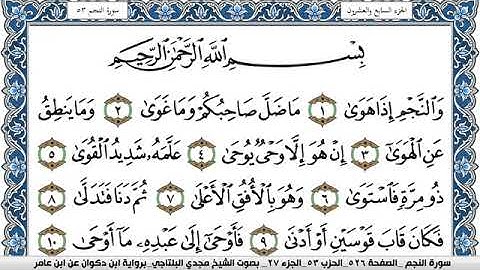 سورة النجم ٥٣
الجزء السابع والعشرون
بِسْمِ اللَّهِ الرَّحْمَٰنِ الرَّحِيمِ
وَالنَّجْمِ إِذَا هَوَىٰ ١ مَا ضَلَّ صَاحِبُكُمْ وَمَا غَوَىٰ ٢ وَمَا يَنطِقُ
عَنِ الْهَوَىٰ ٣ إِنْ هُوَ إِلَّا وَحْيٌ يُوحَىٰ ٤ عَلَّمَهُ شَدِيدُ الْقُوَىٰ ٥
ذُو مِرَّةٍ فَاسْتَوَىٰ ٦ وَهُوَ بِالْأُفُقِ الْأَعْلَىٰ ٧ ثُمَّ دَنَا فَتَدَلَّىٰ ٨
فَكَانَ قَابَ قَوْسَيْنِ أَوْ أَدْنَىٰ ٩ فَأَوْحَىٰ إِلَىٰ عَبْدِهِ مَا أَوْحَىٰ ١٠
سورة النجم _الصفحة ٥٢٦_الحزب ٥٣_الجزء ٢٧_ بصوت الشيخ مجدي البلتاجي_برواية ابن ذكوان عن ابن عامر